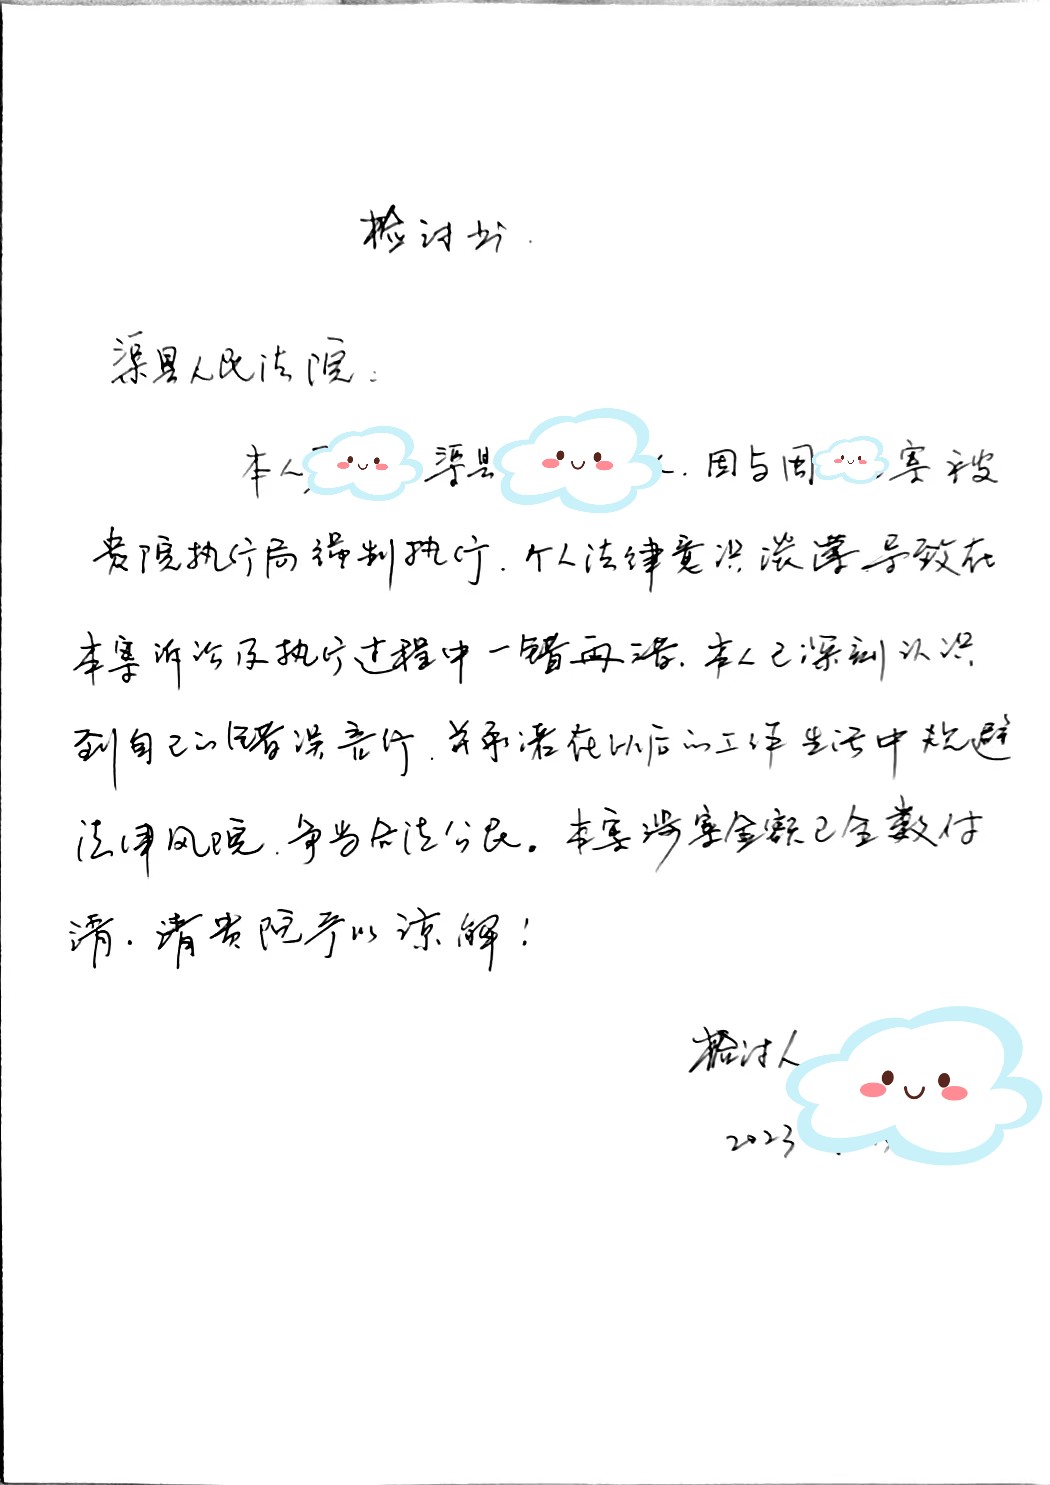 检讨书.
渠县人民法院:
本人 渠县 . 因与周 案被
贵院执行局强制执行. 个人法律意识淡薄导致在
本案诉讼及执行过程中一错再错. 本人已深刻认识
到自己的错误言行. 并承诺在以后的工作生活中规避
法律风险. 争当合法公民。本案涉案金额已全数付
清. 请贵院予以谅解!
检讨人
2023